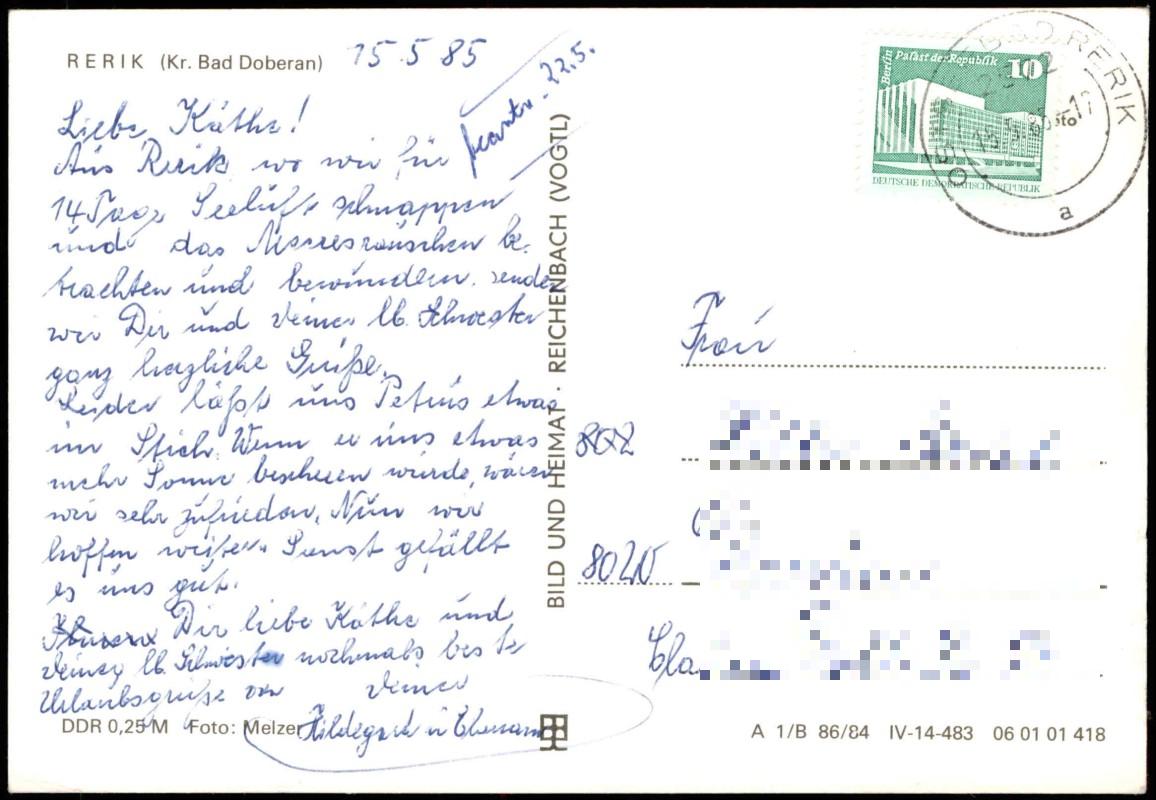 RERIK (Kr. Bad Doberan) 15.5.85
beantw. 22.5.
Liebe Käthe!
Aus Rerik wo wir für
14 Tage Seeluft schnappen
und das Meeresrauschen be-
trachten und bewundern. senden
wir Dir und Deiner lb. Schwester
ganz herzliche Grüße.
Leider läßt uns Petrus etwas
im Stich. Wenn er uns etwas
mehr Sonne bescheren würde, wären
wir sehr zufrieden. Nun wir
hoffen weiter. Sonst gefällt
es uns gut.
Dir liebe Käthe und
Deiner lb. Schwester nochmals beste
Urlaubsgrüße von Deiner
Hildegard u.
DDR 0,25 M Foto: Melzer
BILD UND HEIMAT · REICHENBACH (VOGTL)
Berlin Palast der Republik 10
DEUTSCHE DEMOKRATISCHE REPUBLIK
BAD RERIK
a
Frau
802
8020
A 1/B 86/84 IV-14-483 06 01 01 418